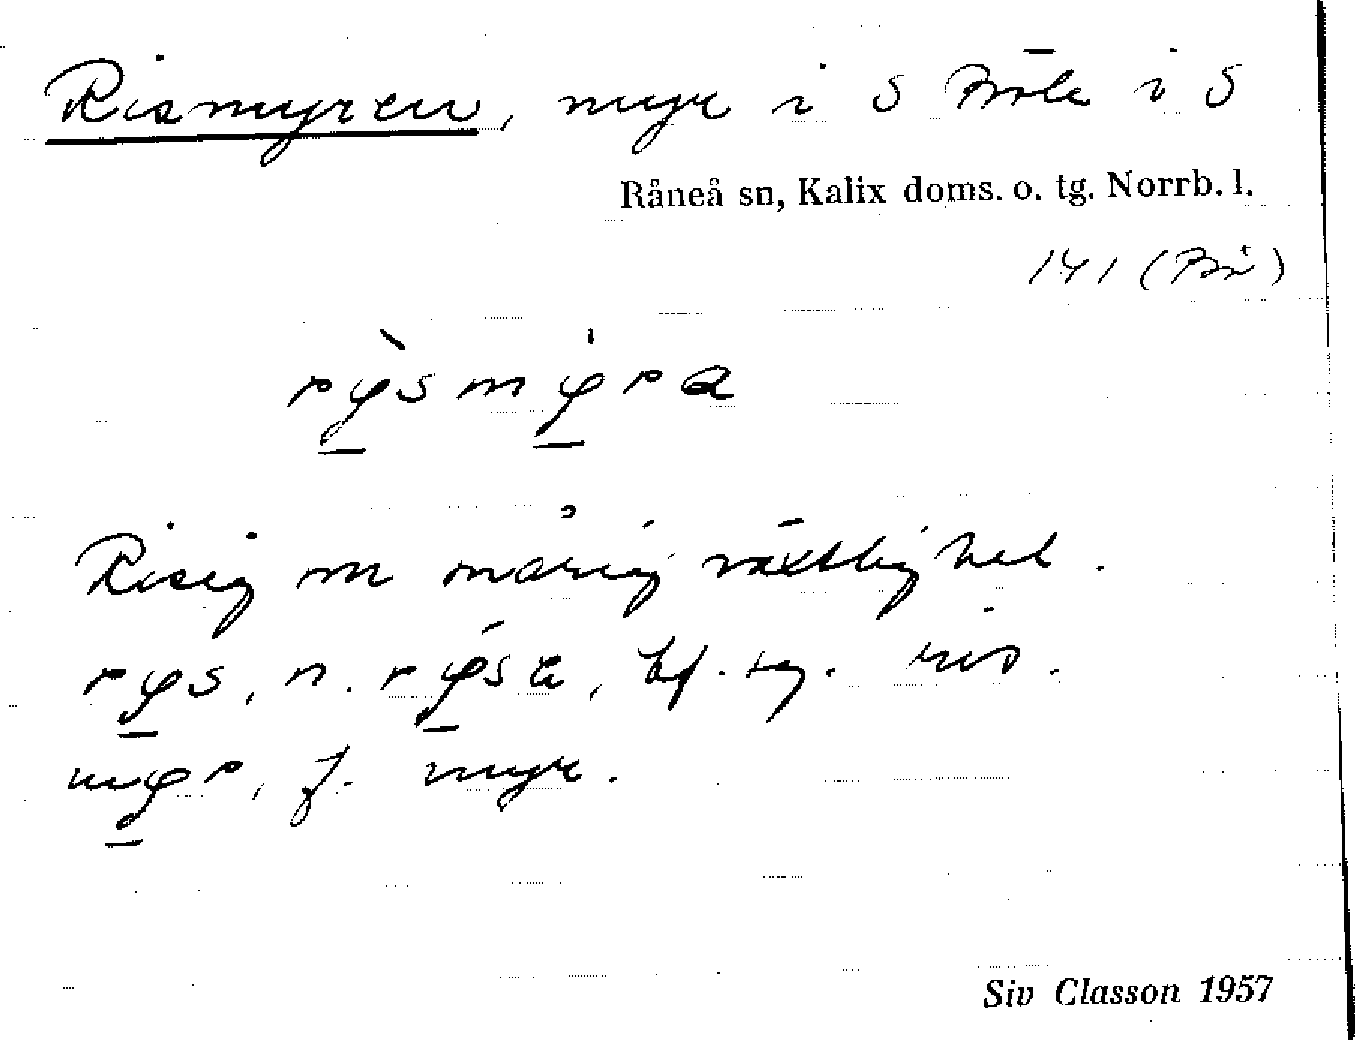 Rismyren, myr i S Böle i S
Råneå sn, Kalix doms. o. tg. Norrb. l.
141 (Bö)
rỳsmy̍ra
Risig m mårig växtlighet.
rys, n. rýsε, bf. sg. ris.
myr, f. myr.
Siv Classon 1957